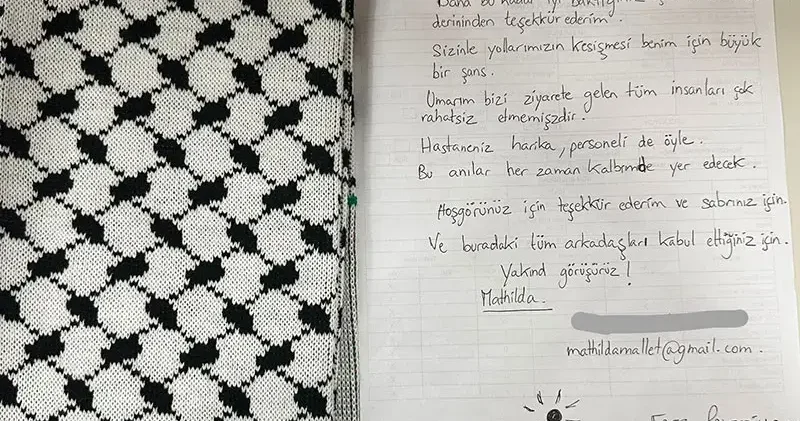 Bana bu kadar iyi
derininden teşekkür ederim.
Sizinle yollarımızın kesişmesi benim için büyük
bir şans.
Umarım bizi ziyarete gelen tüm insanları çok
rahatsiz etmemişzdir.
Hastaneniz harika, personeli de öyle.
Bu anılar her zaman kalbımde yer edecek.
Hoşgörünüz için teşekkür ederim ve sabrınız için.
Ve buradaki tüm arkadaşları kabul ettiğiniz için.
Yakınd görüşürüz!
Mathilda.
mathildamallet@gmail.com.